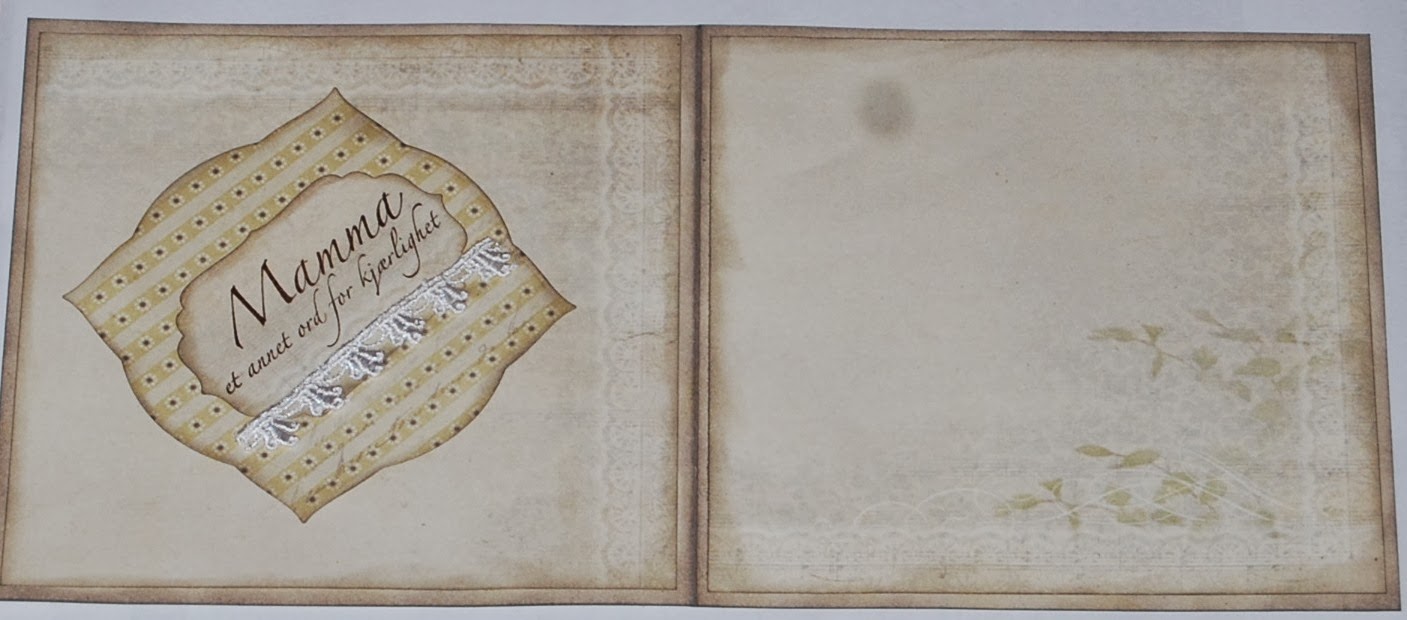 Mamma
et annet ord for kjærlighet